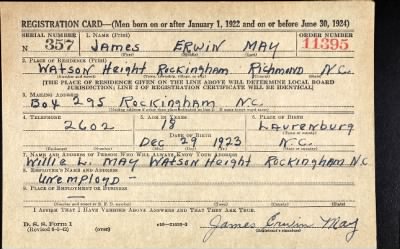 REGISTRATION CARD—(Men born on or after January 1, 1922 and on or before June 30, 1924)
SERIAL NUMBER 1. NAME (Print) ORDER NUMBER
N 357 James ERWIN MAY 11395
(First) (Middle) (Last)
2. PLACE OF RESIDENCE (Print)
WATSON Height Rockingham Richmond N.C.
[THE PLACE OF RESIDENCE GIVEN ON THE LINE ABOVE WILL DETERMINE LOCAL BOARD
JURISDICTION; LINE 2 OF REGISTRATION CERTIFICATE WILL BE IDENTICAL]
3. MAILING ADDRESS
Box 295 Rockingham N.C.
4. TELEPHONE 5. AGE IN YEARS 6. PLACE OF BIRTH
2602 18 Laurenburg
DATE OF BIRTH
Dec 29 1923 N.C.
7. NAME AND ADDRESS OF PERSON WHO WILL ALWAYS KNOW YOUR ADDRESS
Willie L. MAY Watson Height Rockingham N.C
8. EMPLOYER'S NAME AND ADDRESS
Unemployd -
9. PLACE OF EMPLOYMENT OR BUSINESS
I AFFIRM THAT I HAVE VERIFIED ABOVE ANSWERS AND THAT THEY ARE TRUE.
D. S. S. Form 1
(Revised 6-9-42) (over)
James Erwin May